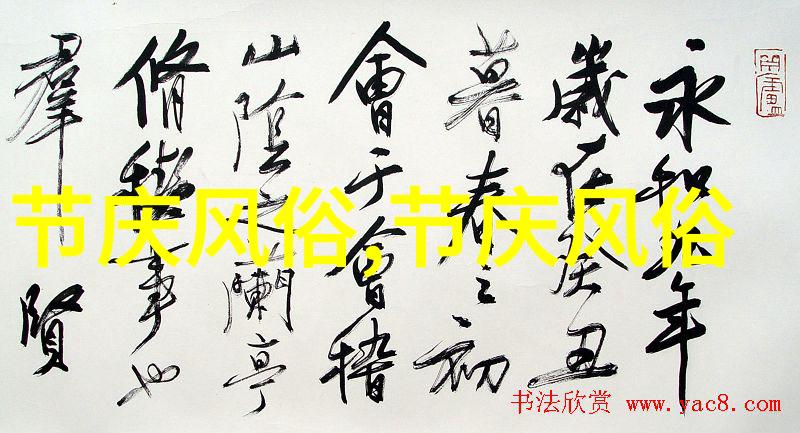 永和九年
歲在癸丑
暮春之初
會于會稽
山陰之蘭亭
脩禊事也
羣賢
节庆风俗,节庆风俗
书法欣赏 www.yac8.com